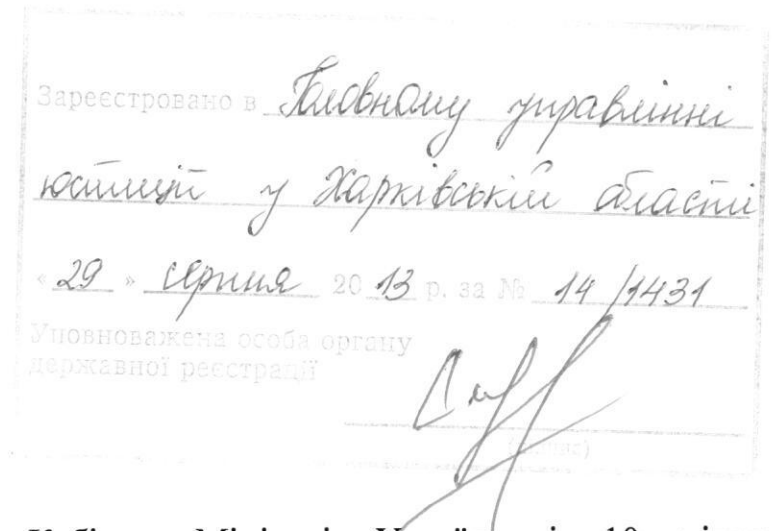 Зареєстровано в Головному управлінні
юстиції у Харківській області
« 29 » серпня 20 13 р. за № 14/1431
Уповноважена особа органу
державної реєстрації
(підпис)